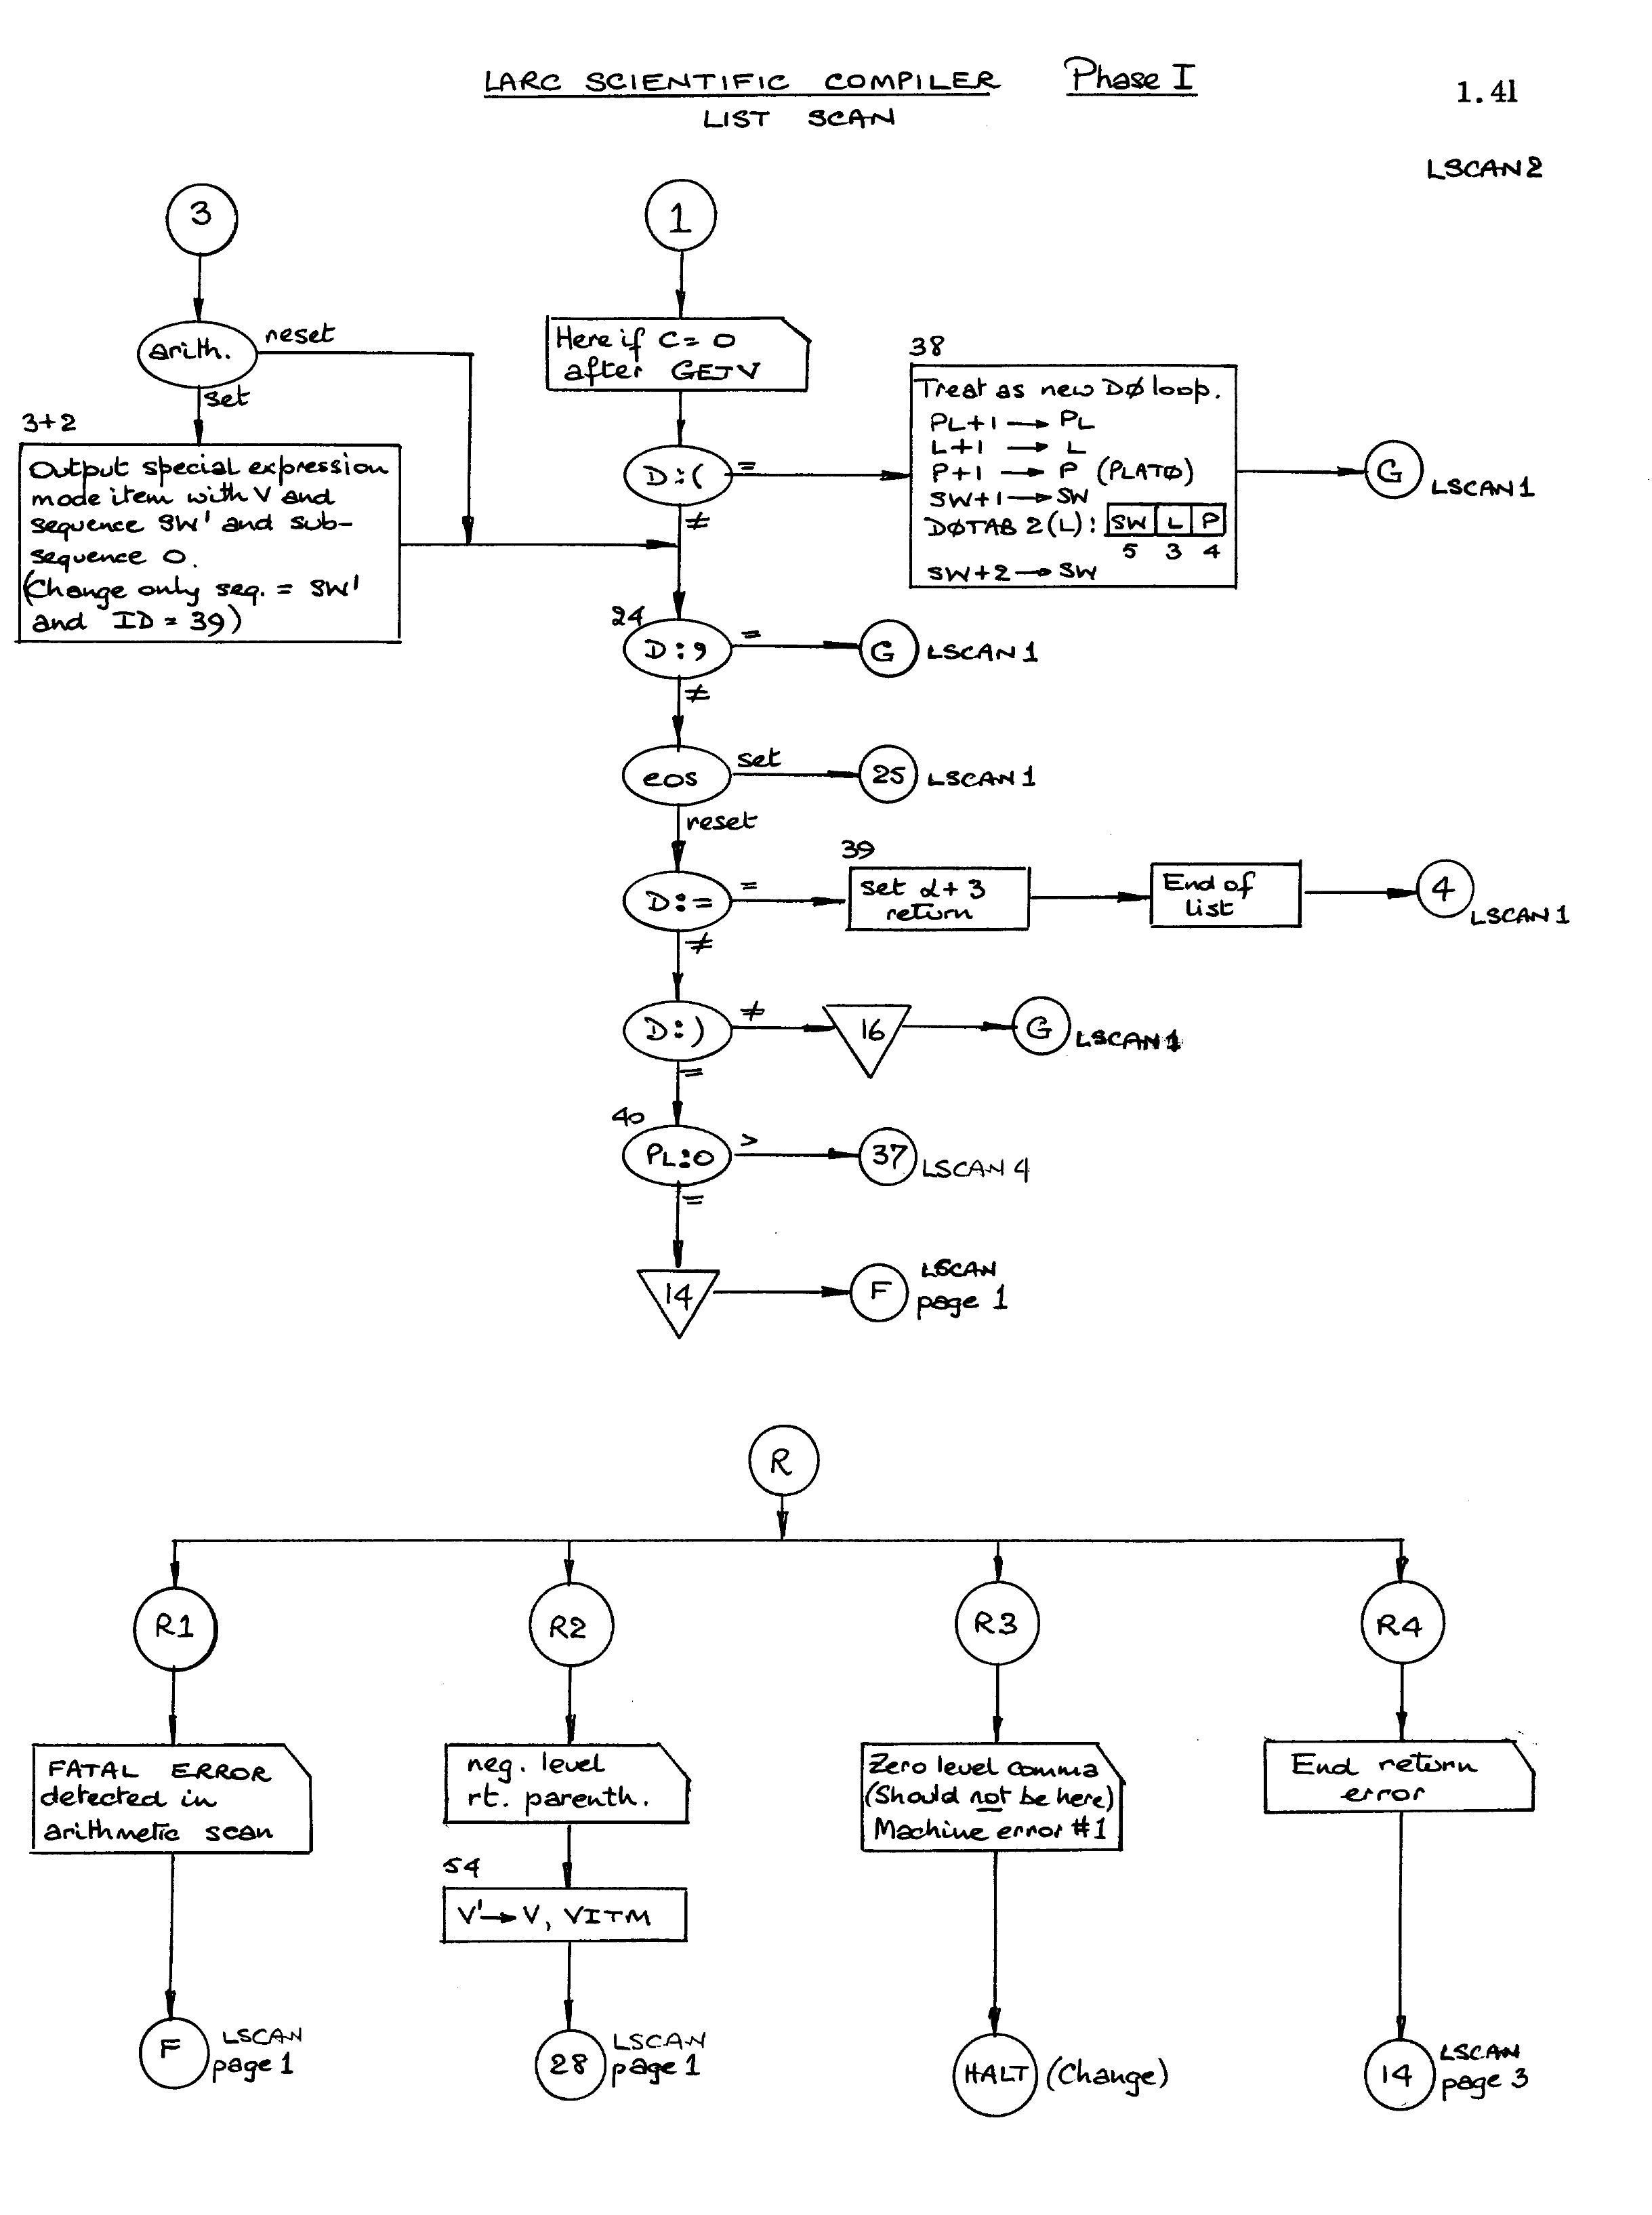 LARC SCIENTIFIC COMPILER Phase I
1.41
LIST SCAN
LSCAN2
3
arith.
reset
set
3+2
Output special expression
mode item with V and
sequence SW' and sub-
sequence 0.
(Change only seq. = SW'
and ID = 39)
1
Here if C = 0
after GETV
D:(
=
≠
38
Treat as new DØ loop.
PL+1 → PL
L+1 → L
P+1 → P (PLATØ)
SW+1 → SW
DØTAB 2(L): SW L P
5 3 4
SW+2 → SW
G
LSCAN1
24
D:,
=
G
LSCAN1
≠
eos
set
25
LSCAN1
reset
D:=
=
39
set α+3
return
End of
list
4
LSCAN1
≠
D:)
≠
16
G
LSCAN1
=
40
PL:0
>
37
LSCAN4
=
14
F
LSCAN
page 1
R
R1
R2
R3
R4
FATAL ERROR
detected in
arithmetic scan
F
LSCAN
page 1
neg. level
rt. parenth.
54
V' → V, VITM
28
LSCAN
page 1
Zero level comma
(Should not be here)
Machine error #1
HALT
(Change)
End return
error
14
LSCAN
page 3